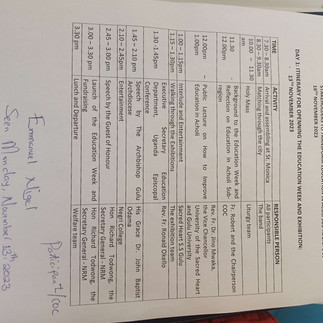 16TH NOVEMBER 2023
DAY 1: ITINERARY FOR OPENING THE EDUCATION WEEK AND EXHIBITION;
13TH NOVEMBER 2023
TIME ACTIVITY RESPONSIBLE PERSON
7.30 – 8.30am Arrival and assembling at St. Monica All participants
8.30 – 9.30am Matching through the city The band
10.00 – 11.30 am Holy Mass Liturgy team
11.30 – 12.00pm Background to the Education Week and Reflection on Education in Acholi Sub-region Fr. Robert and the Chairperson COC
12.00pm – 1.00pm Public Lecture on How to Improve Education in Acholi Rev. Fr. Dr. Jino Mwaka, the Vice Chancellor University of the Sacred Heart and Gulu University
1.00 – 1.15pm Interlude and Entertainment Sacred Heart S S Gulu
1.15 – 1.30pm Walking through the Exhibitions The exhibition team
1.30 -1.45pm Executive Secretary Education Department, Uganda Episcopal Conference Rev. Fr. Ronald Okello
1.45 – 2.10 pm Speech by The Archbishop Gulu Archdiocese His Grace Dr John Baptist Odama
2.10 – 2.45pm Entertainment Negri College
2.45 – 3.00 pm Speech by the Guest of Honour Hon Richard Todwong, the Secretary General - NRM
3.00 – 3.30 pm Launch of the Education Week and Fundraising Hon. Richard Todwong, the Secretary General - NRM
3.30 pm Lunch and Departure Welfare team
Emmanuel Nigel
Participant/COC
Seen Monday, November 13th 2023